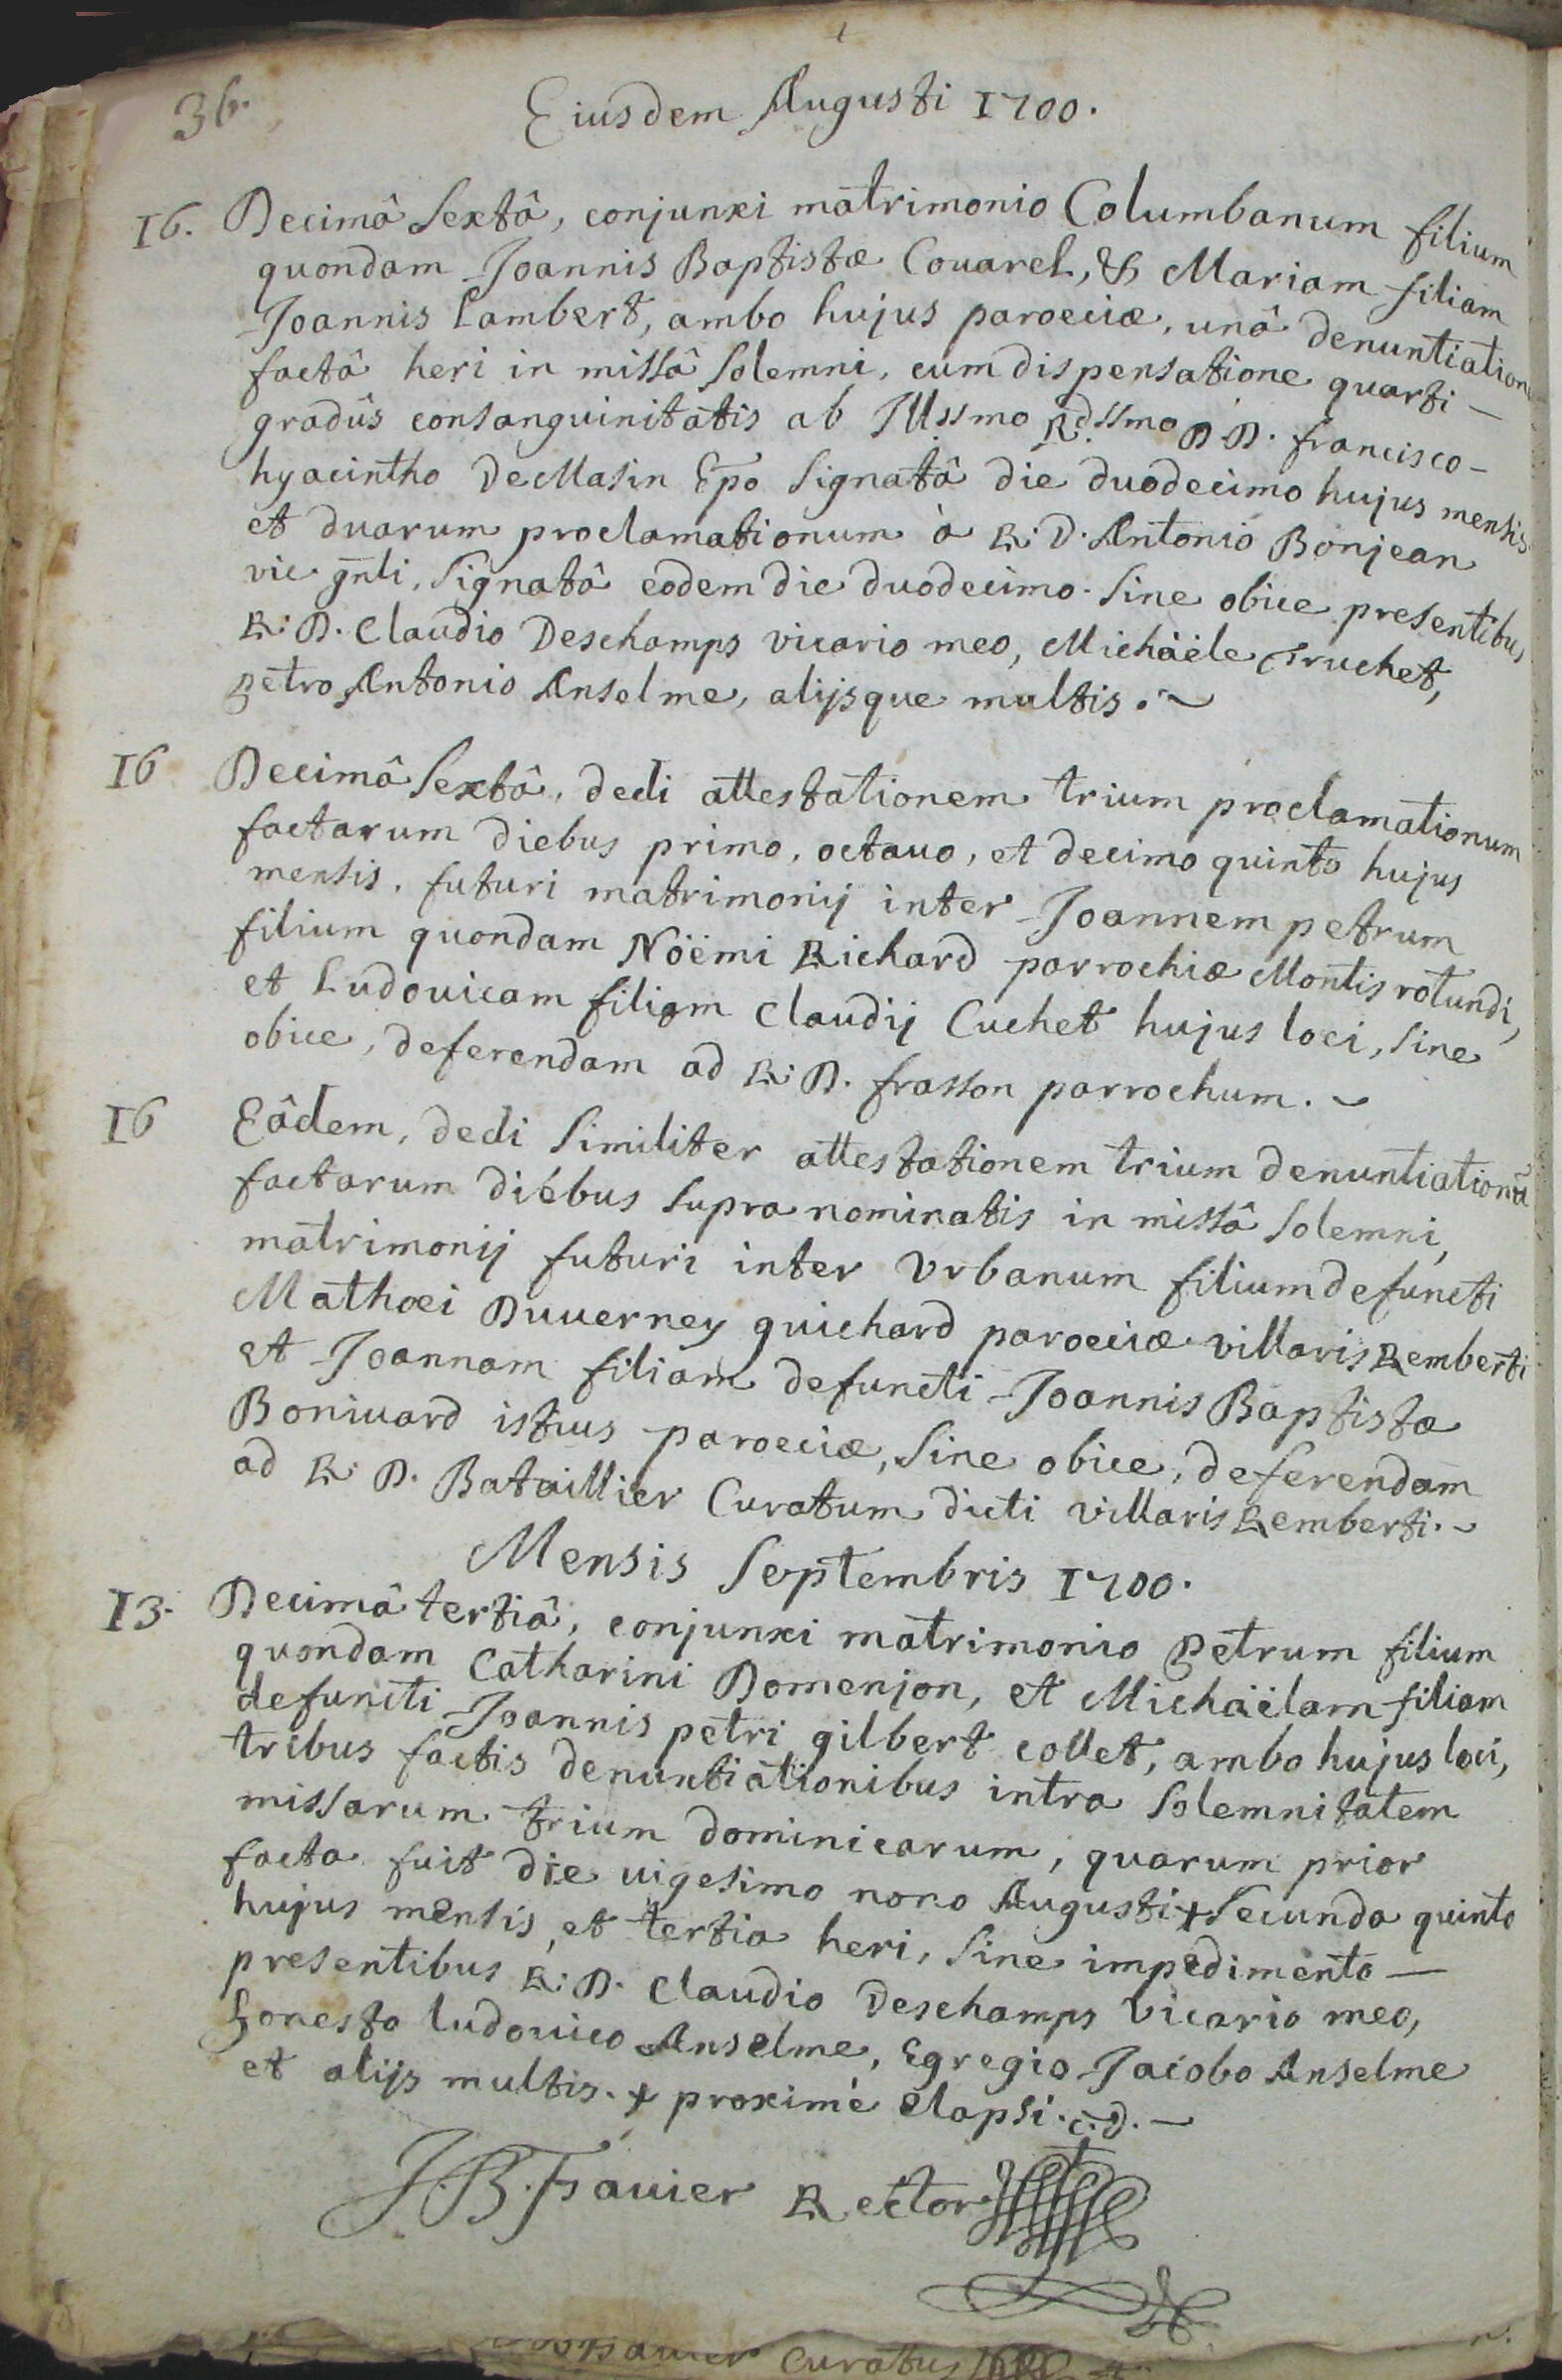 36.
Eiusdem Augusti 1700.
16. Decimâ Sextâ, conjunxi matrimonio Columbanum filium
quondam Joannis Baptistæ Couarel, & Mariam filiam
Joannis Lambert, ambo hujus paroeciæ, unâ denuntiatione
factâ heri in missâ Solemni, cum dispensatione quarti -
gradûs consanguinitatis ab Illssmo Rdssmo D D. francisco -
hyacintho De Masin Epo Signatâ die duodecimo hujus mensis
et duarum proclamationum à R: D. Antonio Bonjean
vic gnli, Signatâ eodem die duodecimo. Sine obice presentibus
R: D. Claudio Deschamps vicario meo, Michäele Truchet,
petro Antonio Anselme, alijsque multis. ~
16 Decimâ Sextâ, dedi attestationem trium proclamationum
factarum diebus primo, octavo, et decimo quinto hujus
mensis, futuri matrimonij inter Joannem petrum
filium quondam Nöëmi Richard parrochiæ Montis rotundi,
et Ludovicam filiam Claudij Cuchet hujus loci, Sine
obice, deferendam ad R: D. frasson parrochum. ~
16 Eâdem, dedi Similiter attestationem trium denuntiationũ
factarum diébus Supra nominatis in missâ Solemni,
matrimonij futuri inter Vrbanum filium defuncti
Mathæi Duverney guichard paroeciæ villaris Remberti
et Joannam filiam defuncti Joannis Baptistæ
Bonivard istius paroeciæ, Sine obice, deferendam
ad R: D. Bataillier Curatum dicti villaris Remberti. ~
Mensis Septembris 1700.
13. Decimâ tertiâ, conjunxi matrimonio Petrum filium
quondam Catharini Domenjon, et Michäëlam filiam
defuncti Joannis petri gilbert collet, ambo hujus loci,
tribus factis denuntiationibus intra Solemnitatem
missarum trium dominicarum, quarum prior
facta fuit die uigesimo nono Augusti + Secunda quinto
hujus mensis, et tertia heri, Sine impedimento —
presentibus R: D. Claudio Deschamps Vicario meo,
honesto ludovico Anselme, Egregio Jacobo Anselme
et alijs multis. + proximé elapsi. c. d. -
J. B. Favier Rector
Curatus